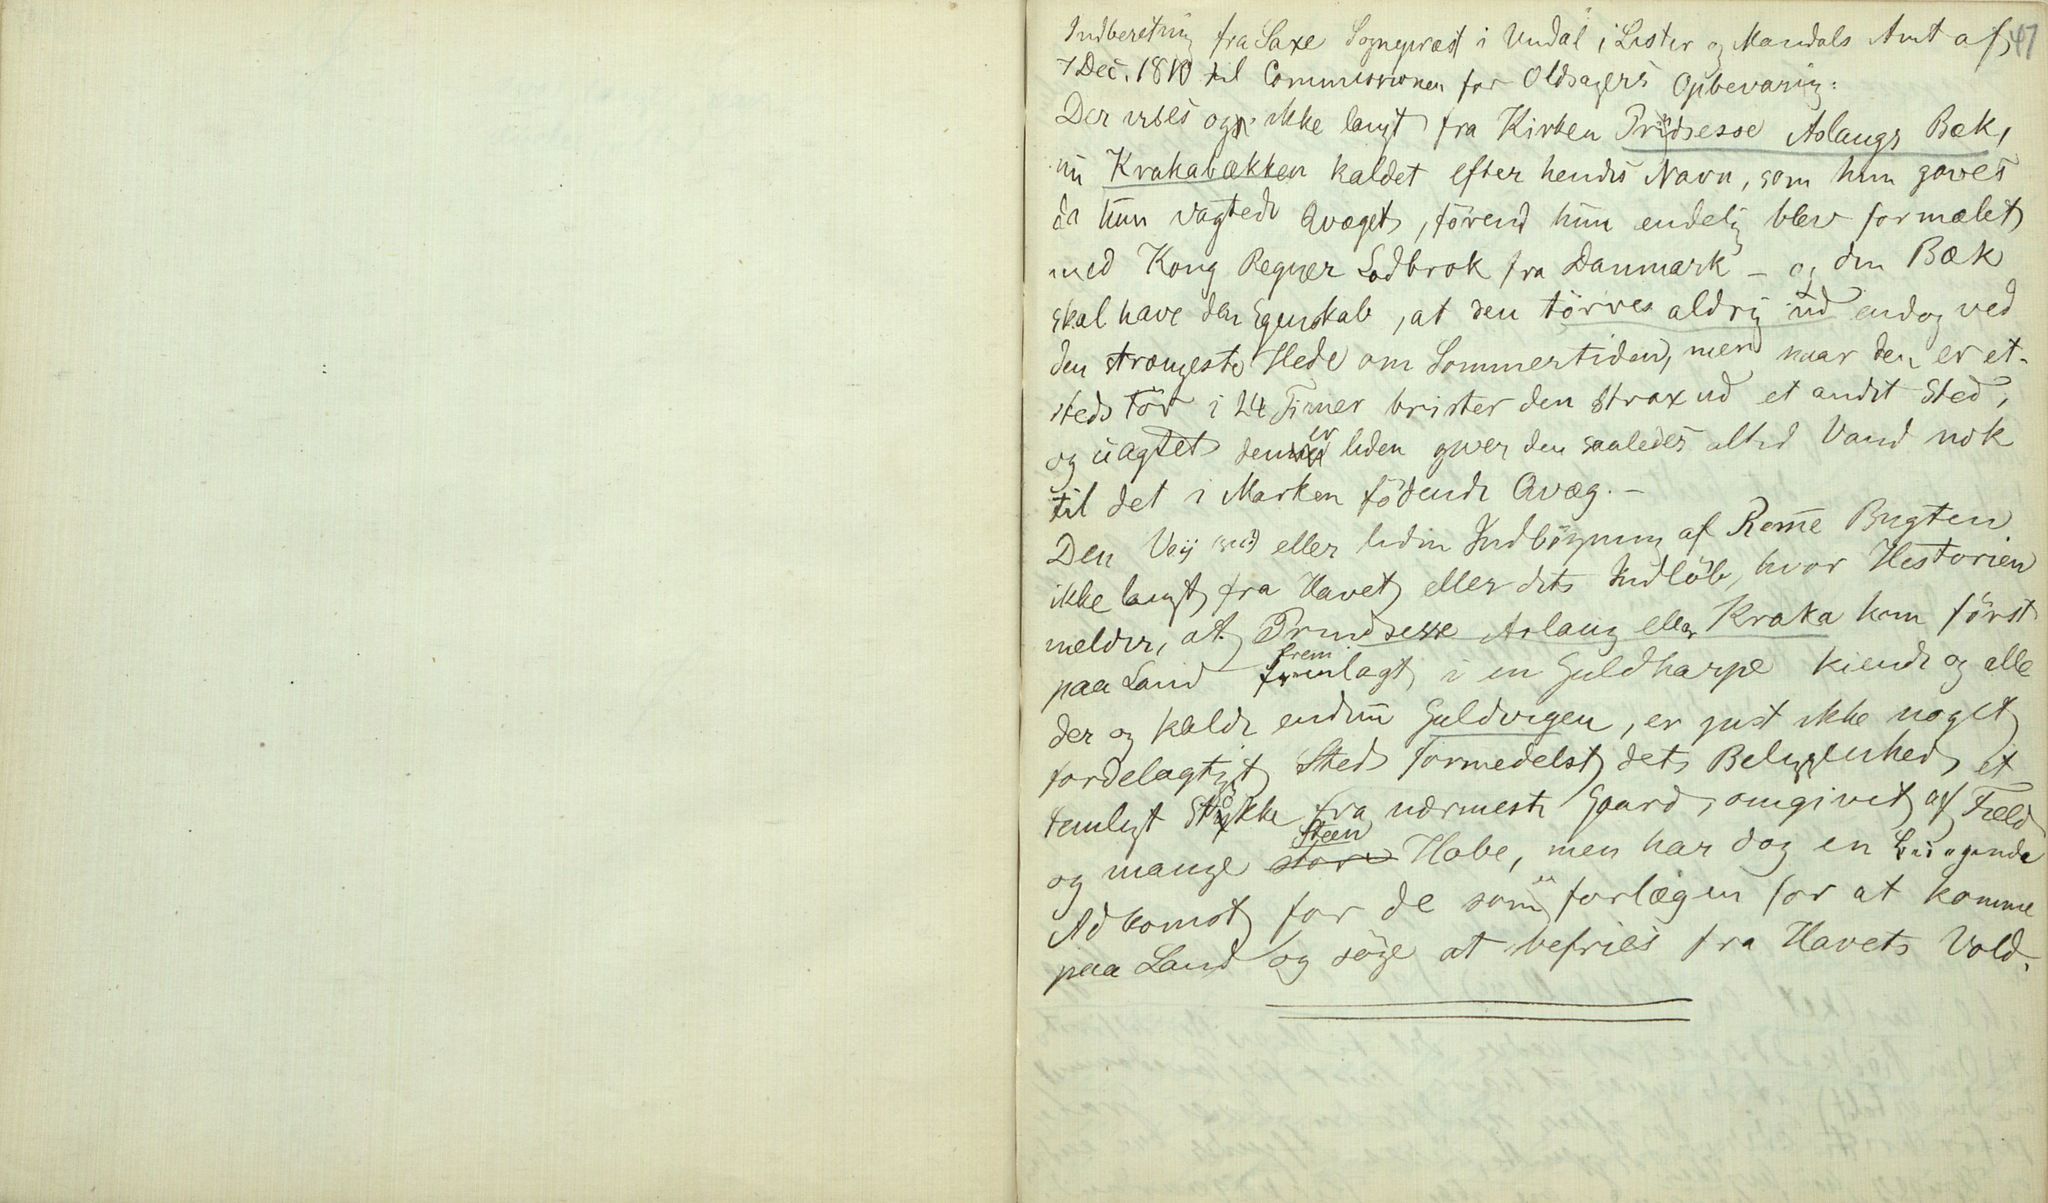 Indberetning fra Saxe Sognepræst i Undal i Lister og Mandals Amt af 47
7 Dec. 1810 til Commissionen for Oldsagers Opbevaring:
Der vises også ikke langt fra Kirken Prindsesse Aslaugs Bæk,
nu Krakabækken kaldet efter hendes Navn, som hun gaves
da hun vagtede Qvæget, førend hun endelig blev formælet
med Kong Regner Lodbrok fra Danmark – og den Bæk
skal have den Egenskab, at den tørres aldrig ud endog ved
den strængeste Hede om Sommertiden, men naar den er et-
steds tør i 24 Timer brister den strax ud et andet Sted,
og uagtet den er liden giver den saaledes altid Vand nok
til det i Marken fødende Qvæg. –
Den Viig (sic) eller liden Indbøyning af Rome Bugten
ikke langt fra Havet eller dets Indløb, hvor Historien
melder, at Prindsesse Aslaug eller Kraka kom først
paa Land fremlagt i en Guldharpe kiende og alle
der og kalde endnu Guldvigen, er just ikke noget
fordelagtigt Sted formedelst dets Beliggenhed et
temligt Stykke fra nærmeste Gaard, omgivet af Fjeld
og mange store Steen Hobe, men har dog en
Adkomst for de som er forlægen for at komme
paa Land og søge at befries fra Havets Vold.